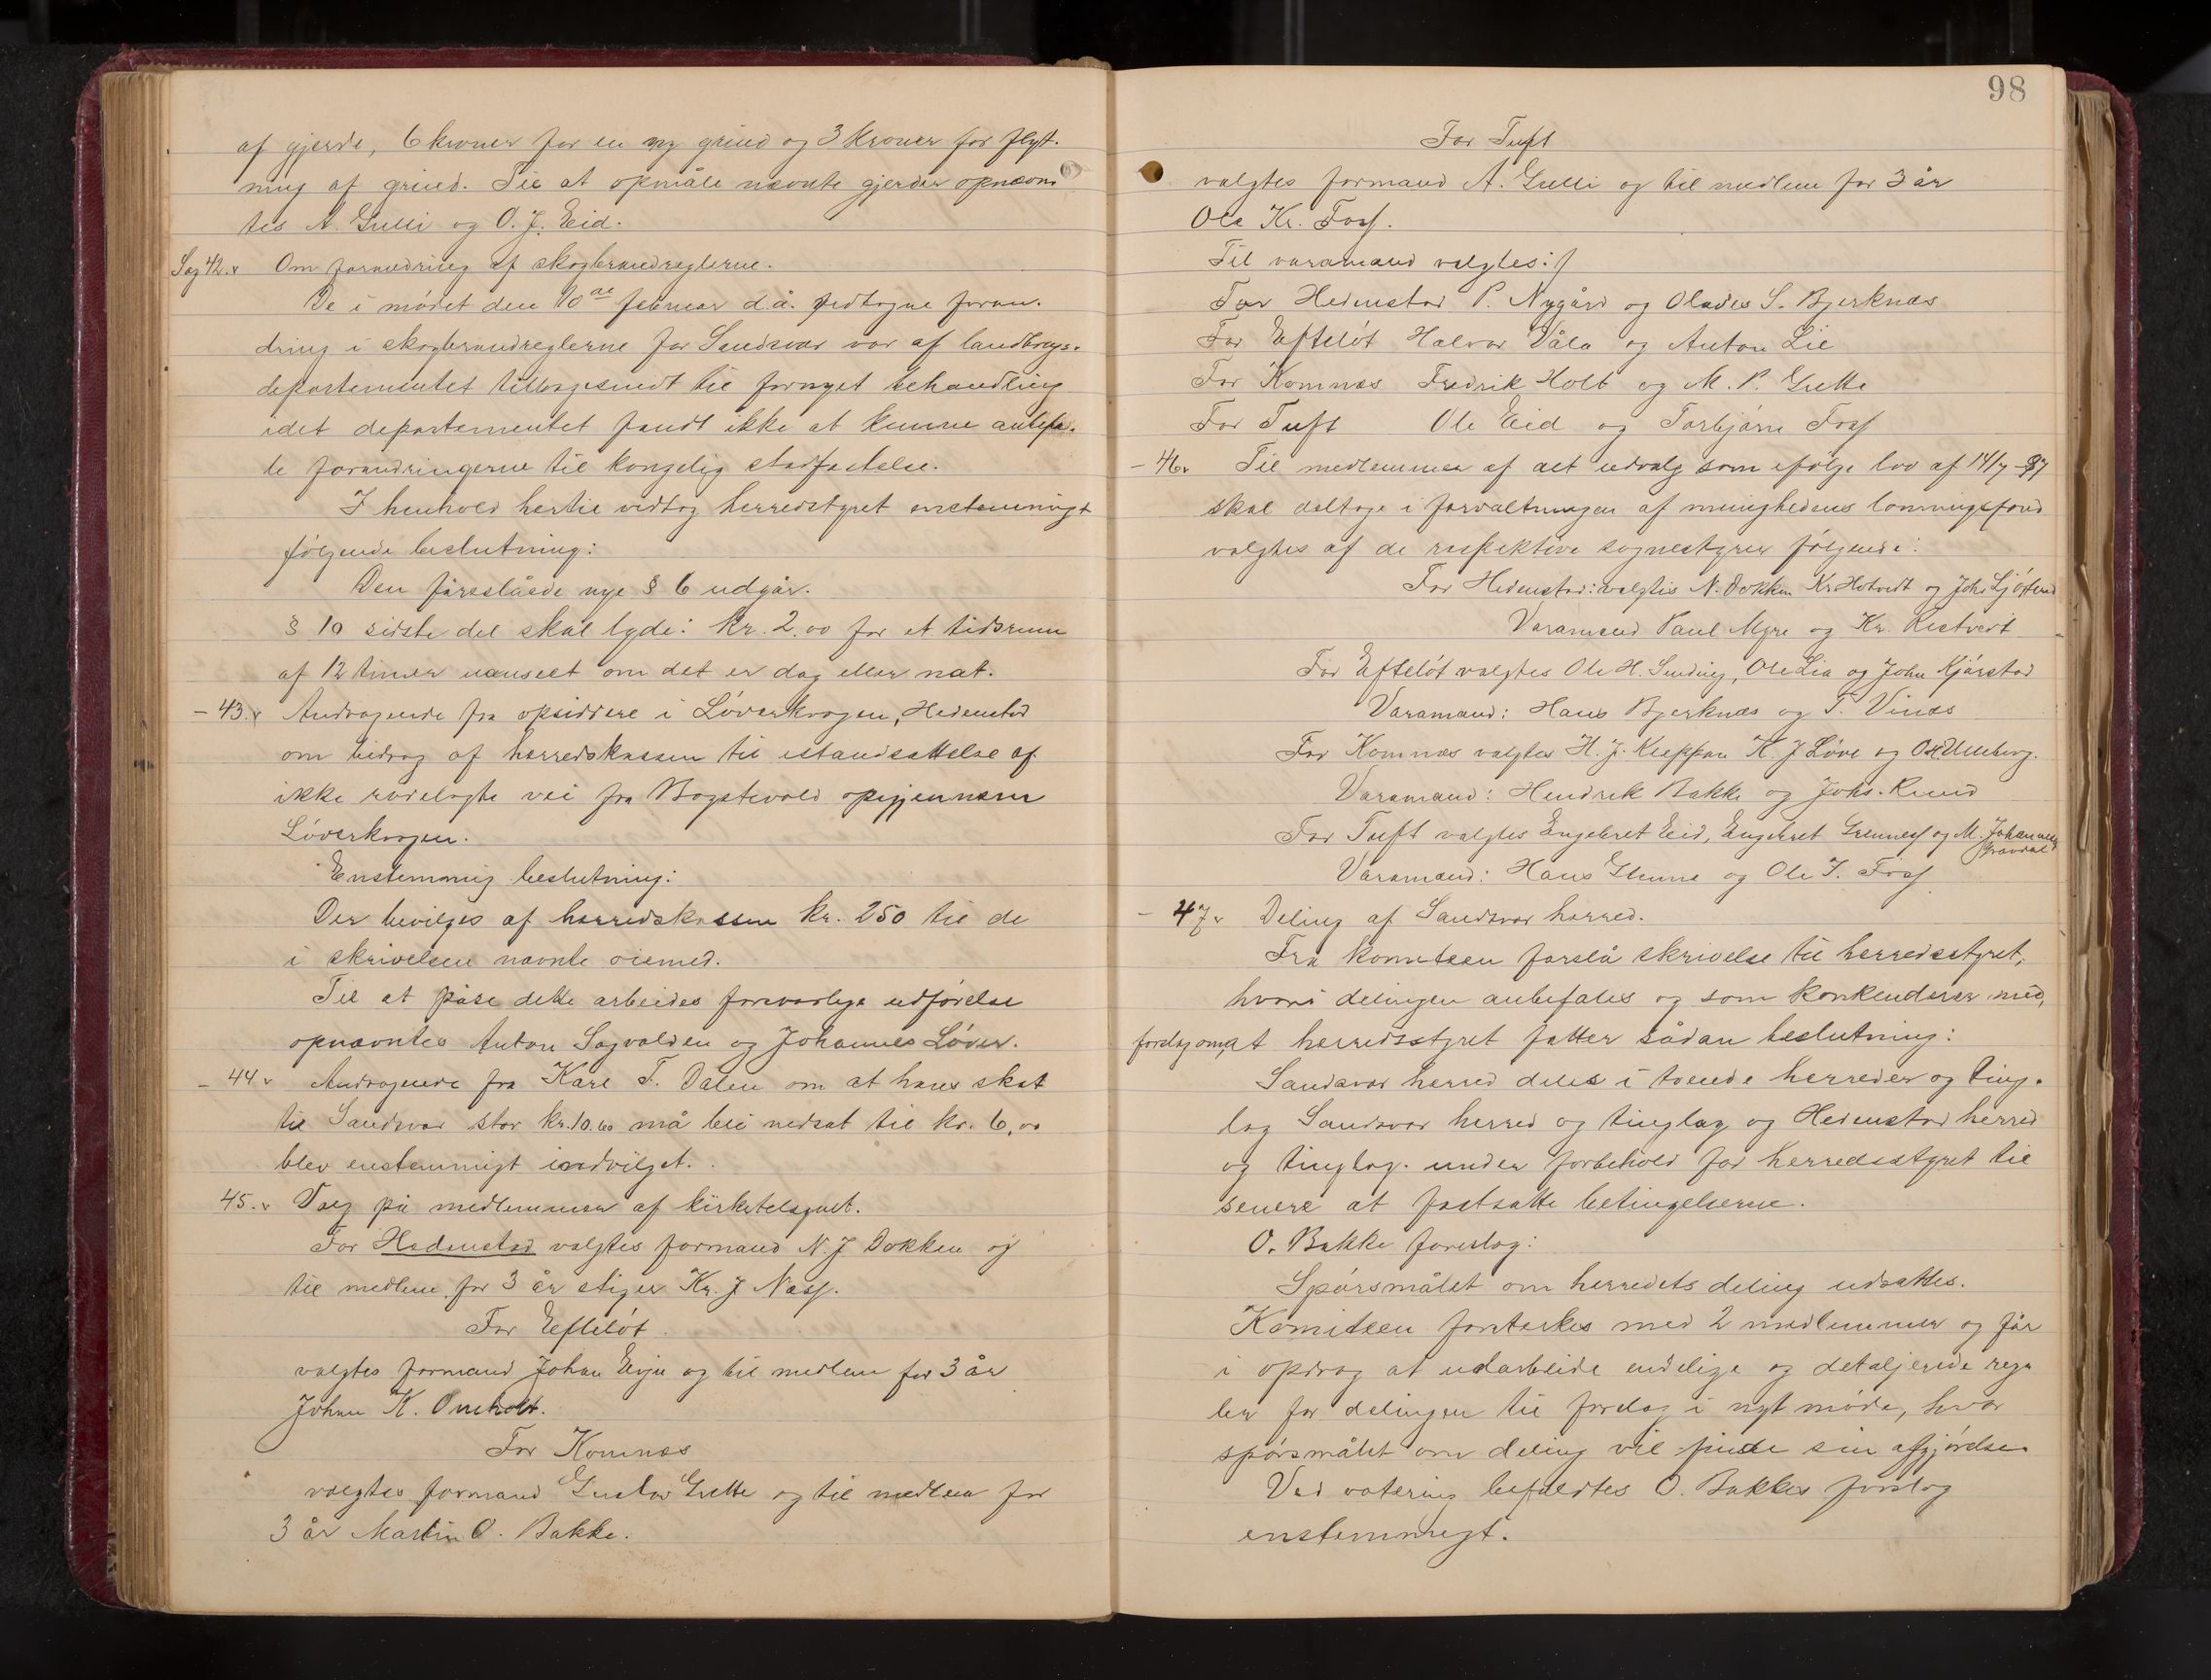 af gjerde, 6 kroner for en ny grind og 3 kroner for flyt-
ning af grind. Til at opmåle nævnte gjerder opnævn
tes A. Gulli og O. J. Eid.
Sag 42. Om forandring af skogbrandreglerne.
De i mødet den 10de februar d.å. vedtagne foran-
dring i skogbrandreglerne for Sandsvær var af landbrugs-
departementet tilbagesendt til fornyet behandling
idet departementet fandt ikke at kunne anbefa-
le forandringerne til kongelig stadfæstelse.
I henhold hertil vedtog herredstyret enstemmigt
følgende beslutning:
Den føreslåede nye § 6 udgår.
§ 10 sidste del skal lyde: kr. 2.00 for et tidsrum
af 12 timer uanseet om det er dag eller nat.
- 43. Andragende fra opsiddere i Løverkrogen, Hedenstad
om bidrag af herredskassen til istandsættelse af
ikke rodelagte vei fra Bogstevold opigjennem
Løverkrogen.
Enstemmig beslutning:
Der bevilges af herredskassen kr. 250 til de
i skrivelsen nævnte øiemed.
Til at påse dette arbeides forsvarlige udførelse
opnævntes Anton Sagvolden og Johannes Løver.
- 44 Andragende fra Karl T. Dalen om at hans skat
til Sandsvær stor kr. 10.60 må bli nedsat til kr. 6.00
blev enstemmigt indvilget.
45. Valg på medlemmer af kirketilsynet.
For Hedenstad valgtes formand N. J Dokken og
til medlem for 3 år Kr. J Næss.
For Efteløt
valgtes formand Johan Evju og til medlem for 3 år
Johan K. Omholt.
For Komnæs
valgtes formand Gustav Grette og til medlem for
3 år Martin O. Bakke.
98
For Tuft
valgtes formand A. Gulli og til medlem for 3 år
Ole Kr. Foss.
Til varamænd valgtes:
For Hedenstad P. Nygård og Olaves S. Bjerknæs
For Efteløt Halvor Våla og Anton Lie
For Komnæs Fredrik Holt og M. P. Grette
For Tuft Ole Eid og Torbjørn Foss
- 46. Til medlemmer af det udvalg som ifølge lov af 14/7 - 97
skal deltage i forvaltningen af menighedens lønningsfond
valgtes af de respektive sognestyrer følgende:
For Hedenstad: valgtes N. Dokken Kr. Hotvedt og Johs
Varamænd Paul Myre og Kr. Kistvedt
For Efteløt valgtes Ole H. Sending, Ole Lia og John Kjørstad
Varamænd: Hans Bjerknæs og T. Vinæs
For Komnæs valgtes H. J. Kleppan K J Løve og O. H. Ulleberg.
Varamænd: Hendrik Bakke og Johs. Ruud
For Tuft valgtes Engebret Eid, Engebret Grenness og M. Johannes
Gravdal
Varamænd: Hans Glenne og Ole T. Foss
- 47. Deling af Sandsvær herred.
Fra komiteen forelå skrivelse til herredsstyret,
hvori delingen anbefales og som konkluderer med,
forslag om, at herredsstyret fatter sådan beslutning:
Sandsvær herred deles i tvende herreder og ting-
lag Sandsvær herred og tinglag og Hedenstad herred
og tinglag. under forbehold for herredsstyret til
senere at fastsætte betingelserne.
O. Bakke foreslog:
Spørsmålet om herredets deling udsættes.
Komiteen forstærkes med 2 medlemmer og får
i opdrag at udarbeide endelige og detaljerede reg
ler for delingen til forelæg i nyt møde, hvor
spørsmålet om deling vil finde sin afgjørelse.
Ved votering befuldtes O. Bakkes forslag
enstemmigt.